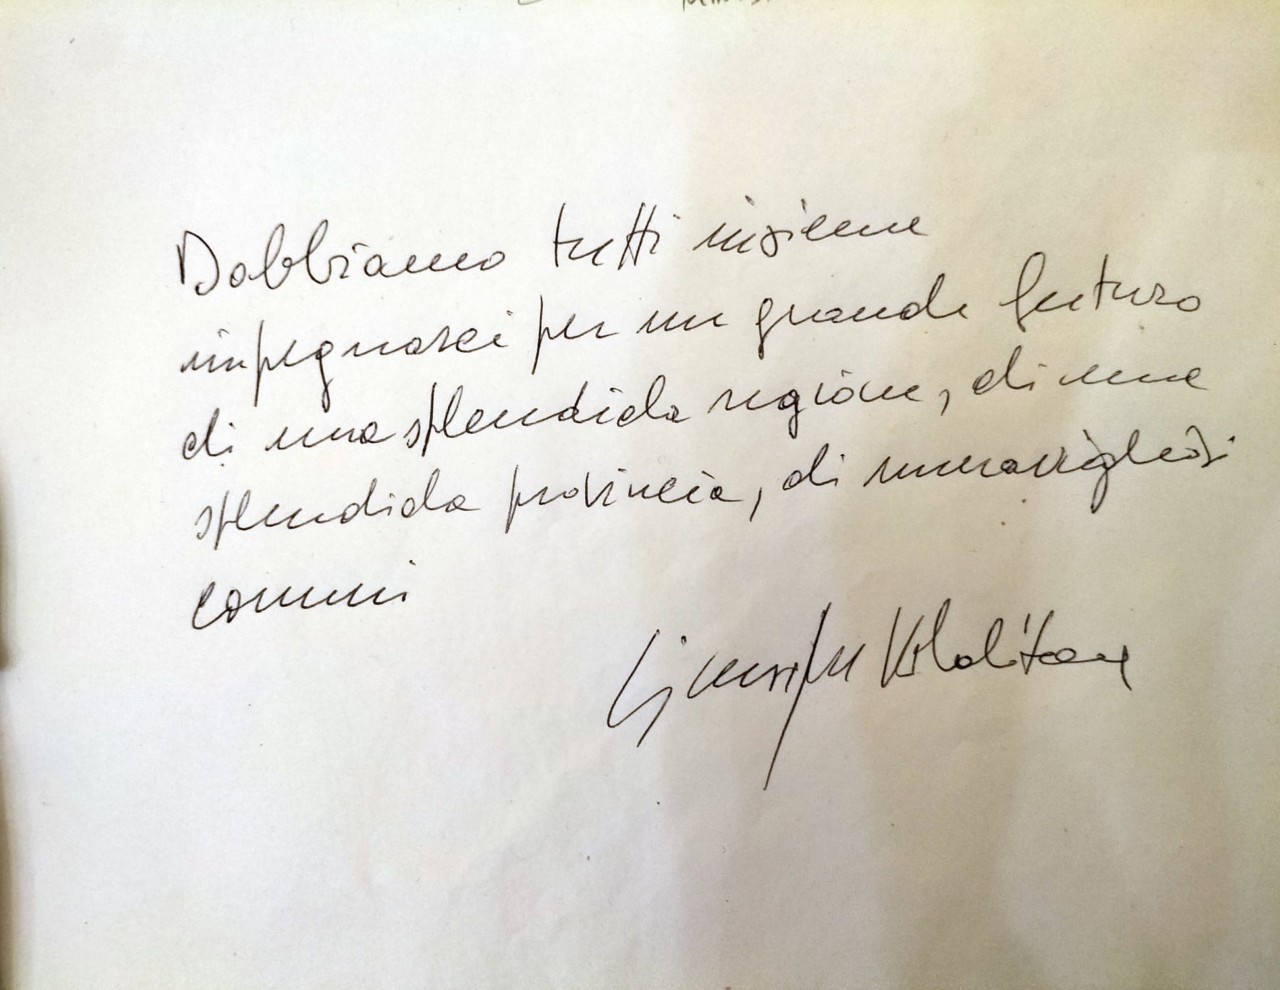 Dobbiamo tutti insieme
impegnarci per un grande futuro
di una splendida regione, di una
splendida provincia, di meravigliosi
comuni
Giuseppe Valditara